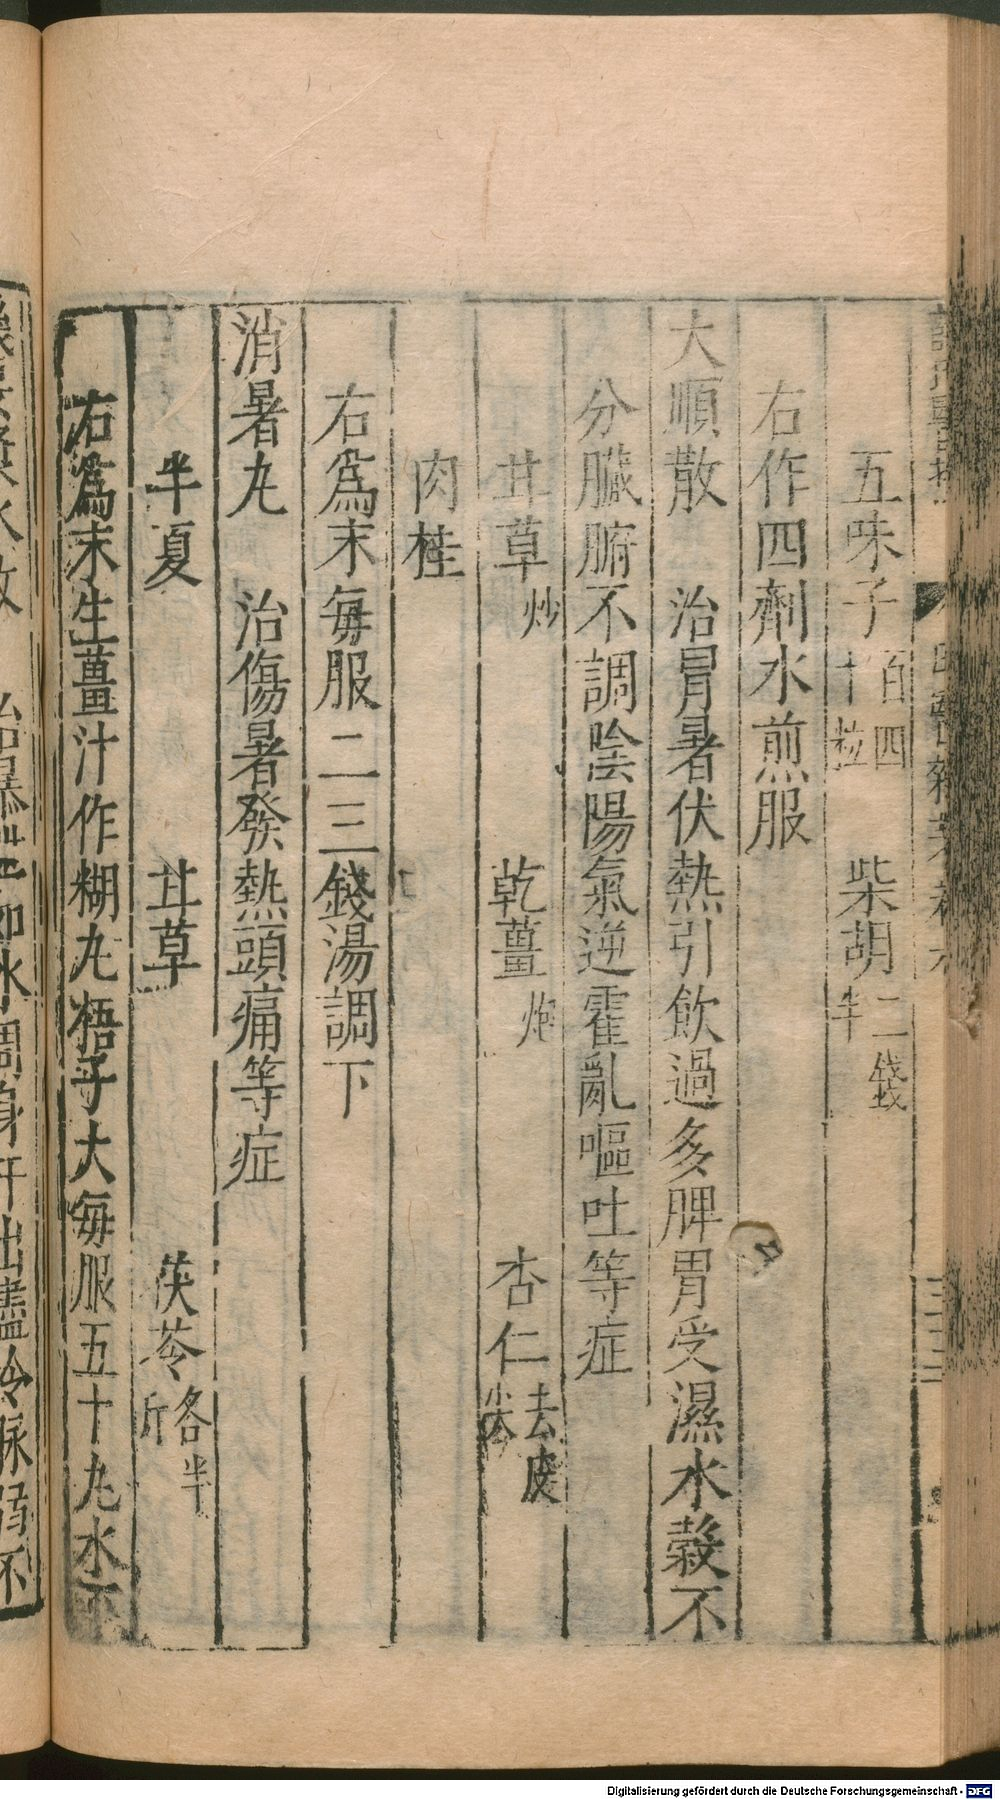 五味子百四十粒　柴胡二錢半
右作四劑水煎服
大順散　治冒暑伏熱引飲過多脾胃受濕水穀不
分臟腑不調陰陽氣逆霍亂嘔吐等症
甘草炒　乾薑炮　杏仁去皮尖
肉桂
右爲末每服二三錢湯調下
消暑丸　治傷暑發熱頭痛等症
半夏　甘草　茯苓各半斤
右爲末生薑汁作糊丸梧子大每服五十丸水下
Digitalisierung gefördert durch die Deutsche Forschungsgemeinschaft - DFG